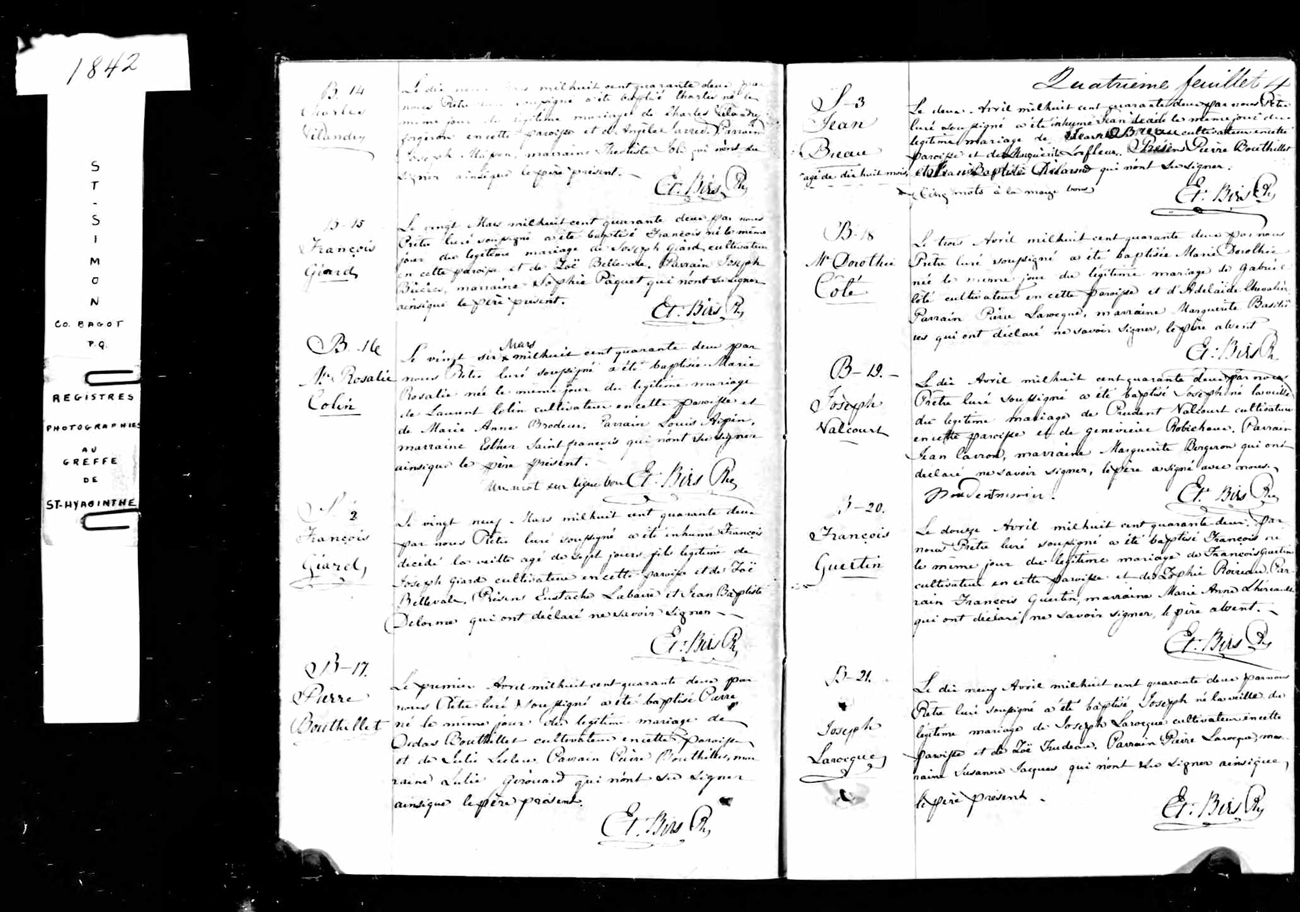 1842
ST-SIMON
CO. BAGOT
P.Q.
REGISTRES
PHOTOGRAPHIES
AU
GREFFE
DE
ST-HYACINTHE
B-14
Charles
Le dix mil huit cent quarante deux par
nous Prêtre soussigné a été baptisé Charles né le
même jour du légitime mariage de Charles
forgeron en cette paroisse et de Parrain
Joseph marraine qui n'ont su
signer ainsi que le père présent.
Et. Birs Ptre
B-15
François
Giard
Le vingt Mars mil huit cent quarante deux par nous
Prêtre curé soussigné a été baptisé François né le même
jour du légitime mariage de Joseph Giard cultivateur
en cette paroisse et de Zoë Bellevale. Parrain Joseph
marraine Sophie Paquet qui n'ont su signer
ainsi que le père présent.
Et. Birs Ptre
B-16
Mie Rosalie
Colin
Mars
Le vingt six mil huit cent quarante deux par
nous Prêtre curé soussigné a été baptisée Marie
Rosalie née le même jour du légitime mariage
de Laurent Colin cultivateur en cette paroisse et
de Marie Anne Brodeur. Parrain Louis Arpin,
marraine Esther Saint françois qui n'ont su signer
ainsi que le père présent.
Un mot sur ligne bon Et. Birs Ptre
S-2
François
Giard
Le vingt neuf Mars mil huit cent quarante deux
par nous Prêtre curé soussigné a été inhumé François
décédé la veille agé de sept jours fils légitime de
Joseph Giard cultivateur en cette paroisse et de Zoë
Bellevale. Présens Eustache Labarre et Jean Baptiste
Delorme qui ont déclaré ne savoir signer
Et. Birs Ptre
B-17.
Pierre
Bouthillet
Le premier Avril mil huit cent quarante deux par
nous Prêtre curé soussigné a été baptisé Pierre
né le même jour du légitime mariage de
Bouthillet cultivateur en cette paroisse
et de Julie Leclerc. Parrain Pierre Bouthillet, mar
raine Julie Girouard qui n'ont su signer
ainsi que le père présent.
Et. Birs Ptre
Quatrième feuillet 4
S-3
Jean
Breau
agé de dix huit mois
Le deux Avril mil huit cent quarante deux par nous Prêtre
curé soussigné a été inhumé Jean le même jour du
légitime mariage de Jean Breau cultivateur en cette
paroisse et de Marguerite Lafleur. Présens Pierre Bouthillet
et Jean Baptiste Delorme qui n'ont su signer.
Cinq mots à la marge bons
Et. Birs Ptre
B-18
Mie Dorothée
Coté
Le trois Avril mil huit cent quarante deux par nous
Prêtre curé soussigné a été baptisée Marie Dorothée
née le même jour du légitime mariage de Gabriel
Coté cultivateur en cette paroisse et d'Adélaide Chevalier
Parrain Pierre Larocque, marraine Marguerite
qui ont déclaré ne savoir signer, le père absent
Et. Birs Ptre
B-19.
Joseph
Valcourt
Le dix Avril mil huit cent quarante deux par nous
Prêtre curé soussigné a été baptisé Joseph né la veille
du légitime mariage de Prudent Valcourt cultivateur
en cette paroisse et de Geneviève Robichaux. Parrain
Jean marraine Marguerite Bergeron qui ont
déclaré ne savoir signer, le père a signé avec nous.
Et. Birs Ptre
B-20.
François
Guertin
Le douze Avril mil huit cent quarante deux par
nous Prêtre curé soussigné a été baptisé François né
le même jour du légitime mariage de François Guertin
cultivateur en cette paroisse et de Sophie Par
rain François Guertin, marraine Marie Anne
qui ont déclaré ne savoir signer, le père absent.
Et. Birs Ptre
B-21.
Joseph
Larocque
Le dix neuf Avril mil huit cent quarante deux par nous
Prêtre curé soussigné a été baptisé Joseph né la veille du
légitime mariage de Joseph Larocque cultivateur en cette
paroisse et de Zoë Trudeau. Parrain Pierre Larocque, mar
raine Susanne Jacques qui n'ont su signer ainsi que
le père présent.
Et. Birs Ptre